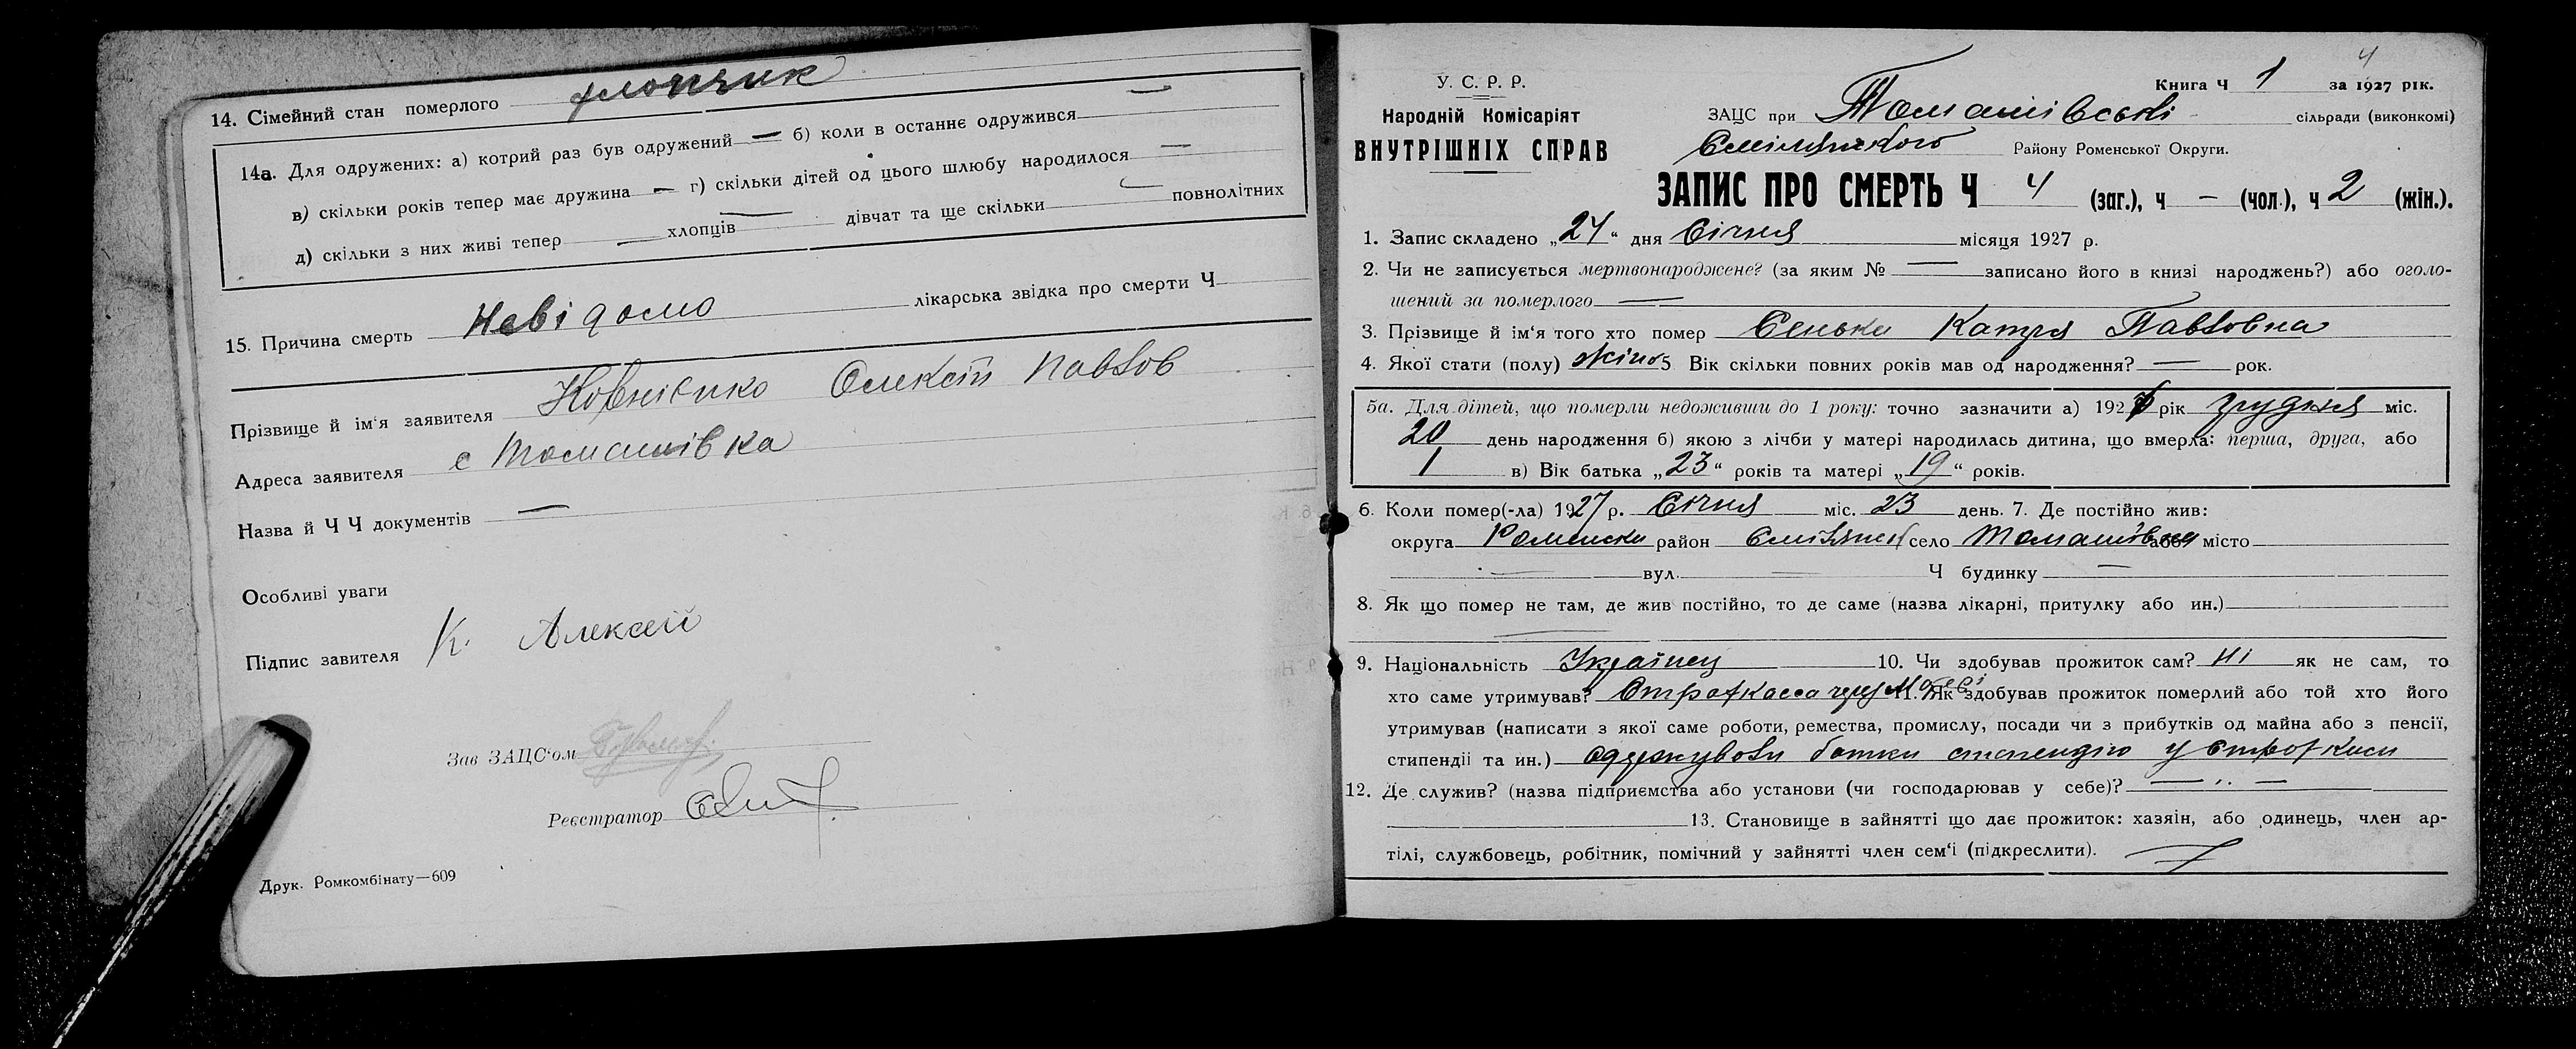 14. Сімейний стан померлого хлопчик
14а. Для одружених: а) котрий раз був одружений — б) коли в останнє одружився —
в) скільки років тепер має дружина — г) скільки дітей од цього шлюбу народилося —
д) скільки з них живі тепер — хлопців — дівчат та ще скільки — повнолітних
15. Причина смерть Невідомо лікарська звідка про смерти Ч
Прізвище й ім'я заявителя Олексій Павлов
Адреса заявителя с Томашівка
Назва й Ч Ч документів —
Особливі уваги
Підпис завителя К. Алексей
Зав ЗАЦС'ом
Реєстратор
Друк. Ромкомбінату—609
4
У. С. Р. Р.
Книга Ч 1 за 1927 рік.
Народній Комісаріят
ВНУТРІШНІХ СПРАВ
ЗАЦС при Томашівські сільради (виконкомі)
Смілянського Району Роменської Округи.
ЗАПИС ПРО СМЕРТЬ Ч 4 (заг.), ч — (чол.), ч 2 (жін.).
1. Запис складено „24“ дня Січня місяця 1927 р.
2. Чи не записується мертвонароджене? (за яким № — записано його в книзі народжень?) або оголо-
шений за померлого —
3. Прізвище й ім'я того хто помер Сенько Катря Павловна
4. Якої стати (полу) жіно 5 Вік скільки повних років мав од народження? — рок.
5а. Для дітей, що померли недоживши до 1 року: точно зазначити а) 1926 рік грудня міс.
20 день народження б) якою з лічби у матері народилась дитина, що вмерла: перша, друга, або
1 в) Вік батька „23“ років та матері „19“ років.
6. Коли помер(-ла) 1927 р. Січня міс. 23 день. 7. Де постійно жив:
округа Роменська район Смілянськ село Томашівка або місто
— вул. — Ч будинку —
8. Як що помер не там, де жив постійно, то де саме (назва лікарні, притулку або ин.)
—
9. Національність Українец 10. Чи здобував прожиток сам? Ні як не сам, то
хто саме утримував? 11. Як здобував прожиток померлий або той хто його
утримував (написати з якої саме роботи, ремества, промислу, посади чи з прибутків од майна або з пенсії,
стипендіі та ин.) одержували батьки стипендію у
12. Де служив? (назва підприємства або установи (чи господарював у себе)? — „ —
13. Становище в зайнятті що дає прожиток: хазяін, або одинець, член ар-
тілі, службовець, робітник, помічний у зайнятті член сем'ї (підкреслити).